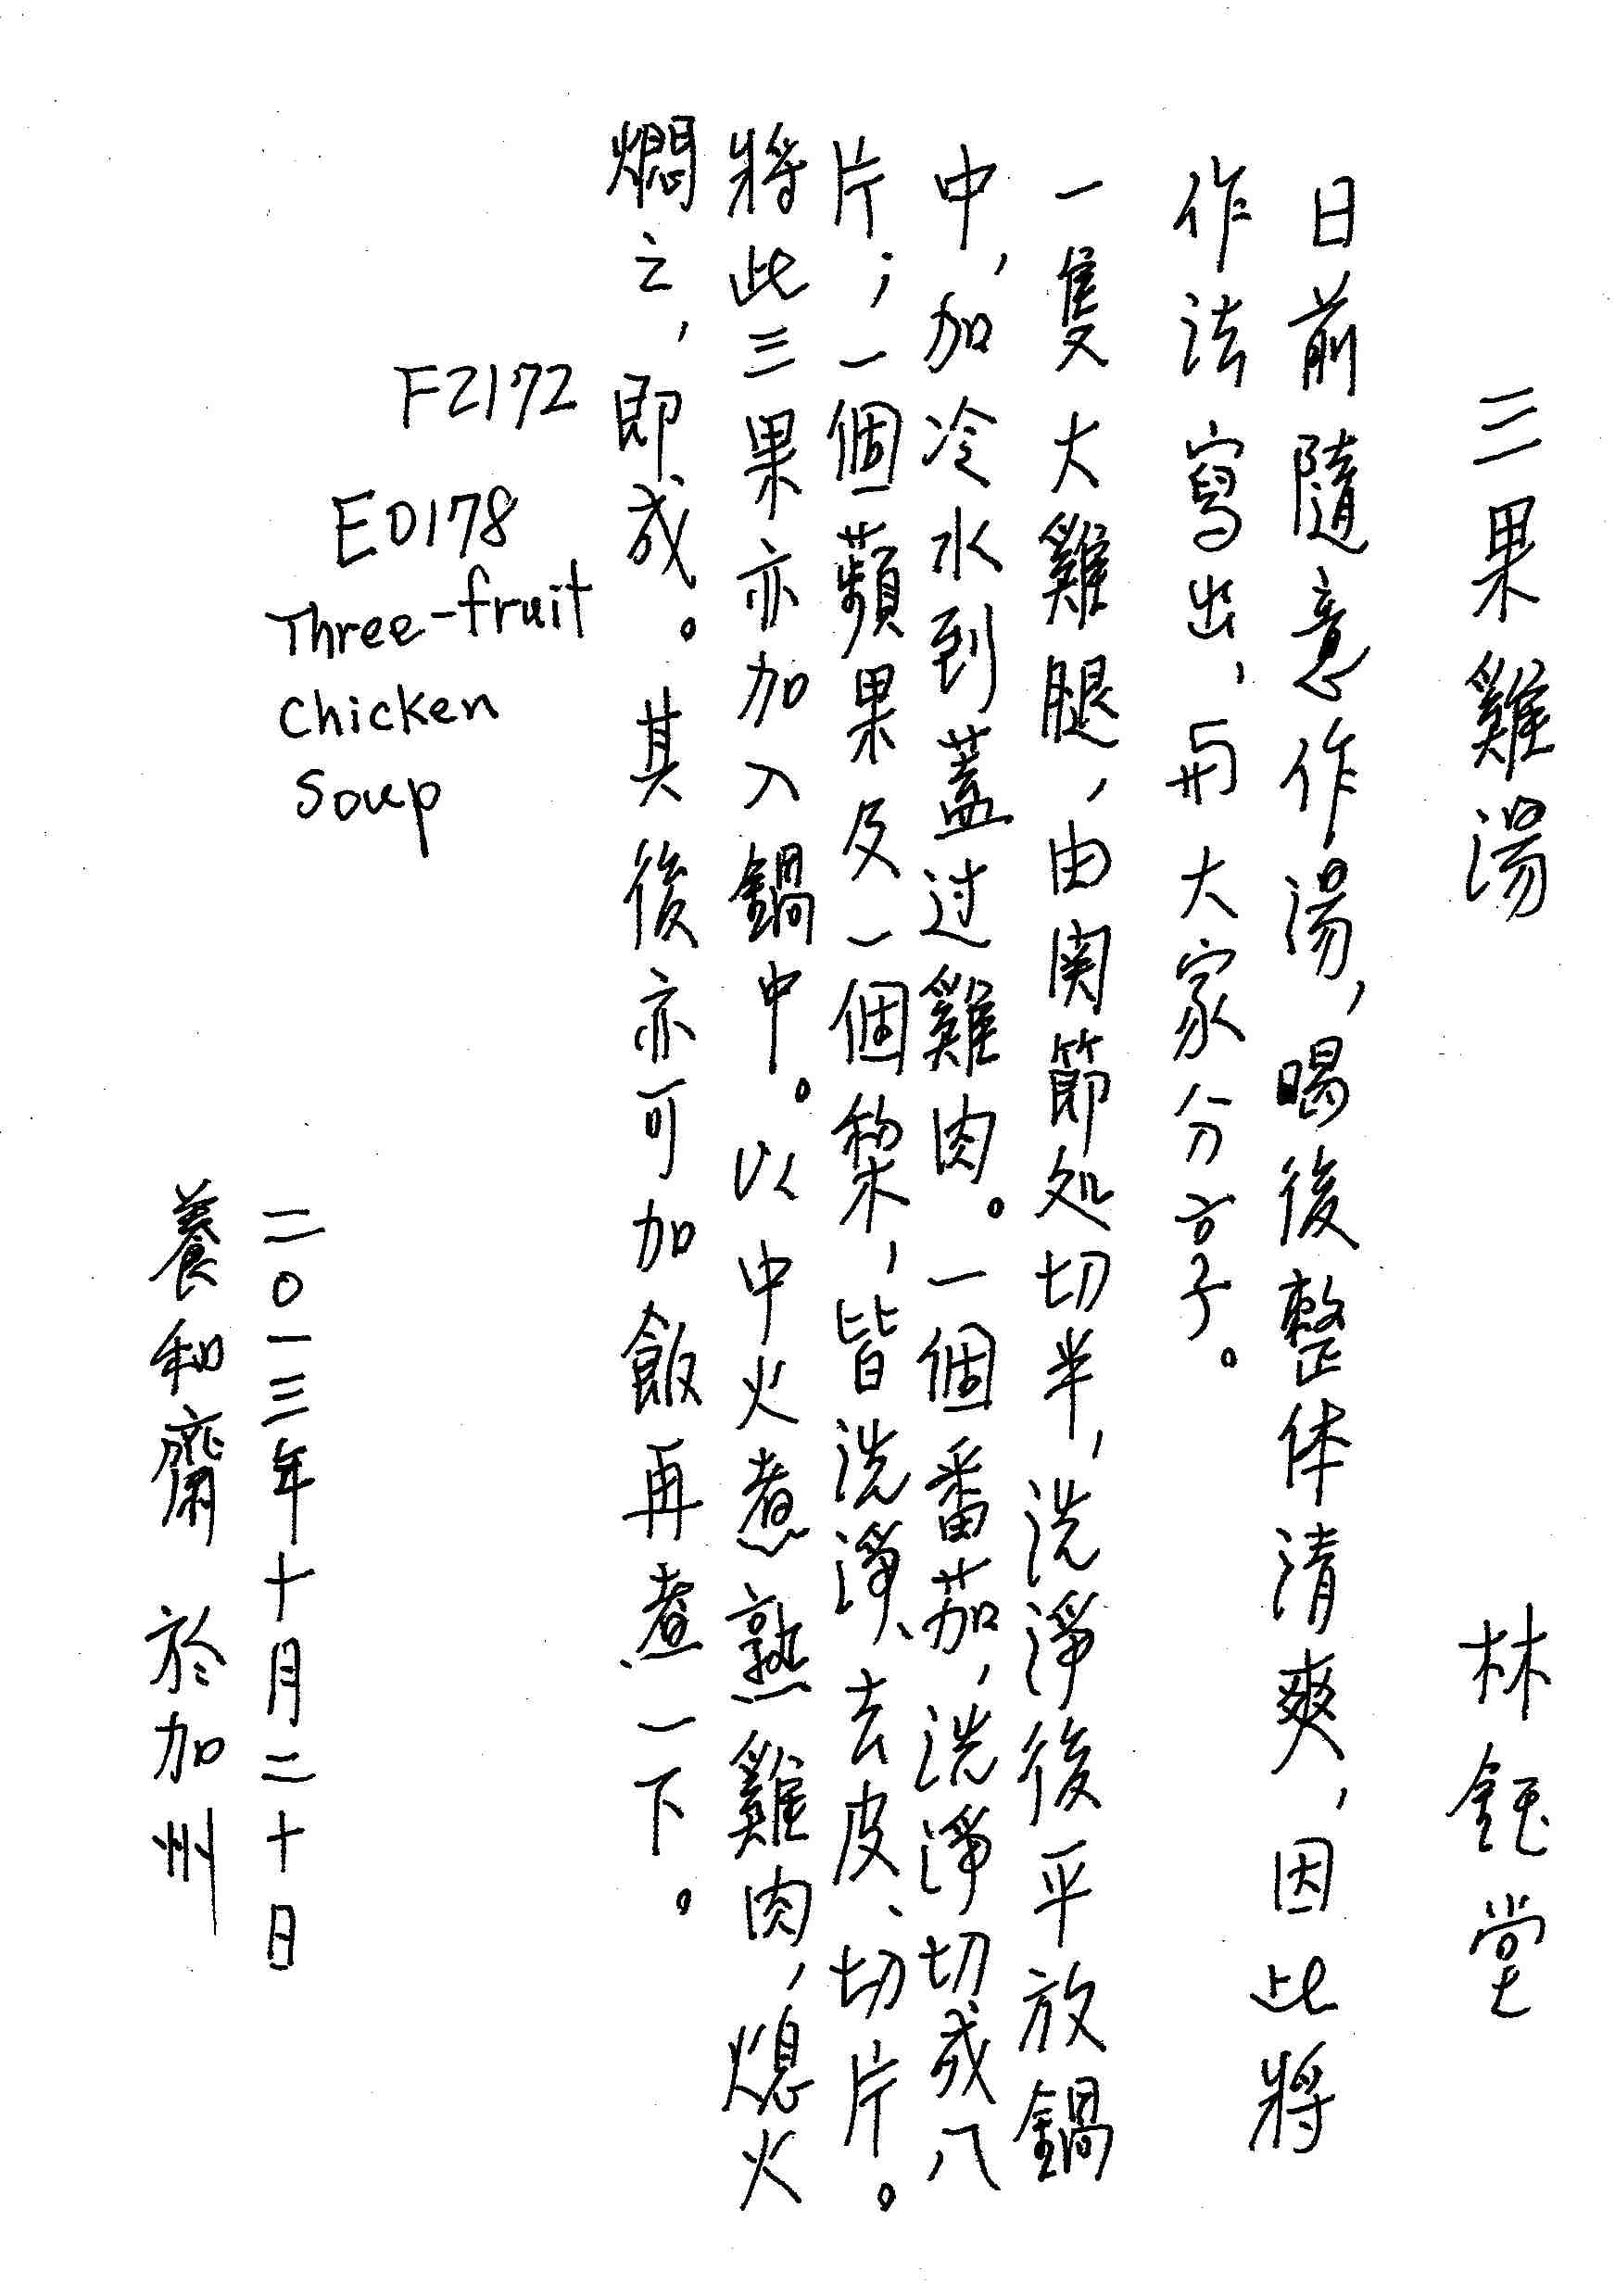 三果雞湯
林鈺堂
日前隨意作湯，喝後整体清爽，因此將
作法寫出，与大家分享。
一隻大雞腿，由関節処切半，洗淨後平放鍋
中，加冷水到蓋过雞肉。一個番茄，洗淨切成八
片；一個蘋果及一個梨，皆洗淨、去皮、切片。
將此三果亦加入鍋中。以中火煮熟雞肉，熄火
燜之，即成。其後亦可加飯再煮一下。
F2172
E0178
Three-fruit
Chicken
Soup
二〇一三年十月二十日
養和齋 於加州